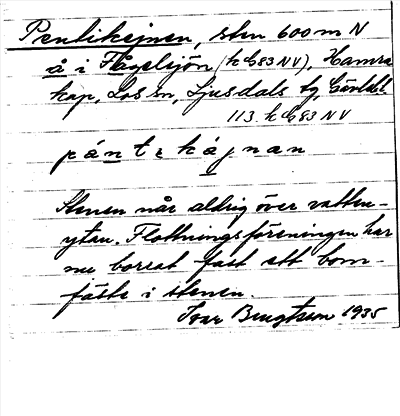 Pentikejnen, sten 600 m N
å i Fågelsjön (h C83 NV), Hamra
kap, Los sn, Ljusdals tg, Gävlebl.
113. h C83 NV
pántikájnan
Stenen når aldrig över vatten-
ytan. Flottningsföreningen har
nu borrat fast ett bom-
fäste i stenen.
Ivar Bengtsson 1935